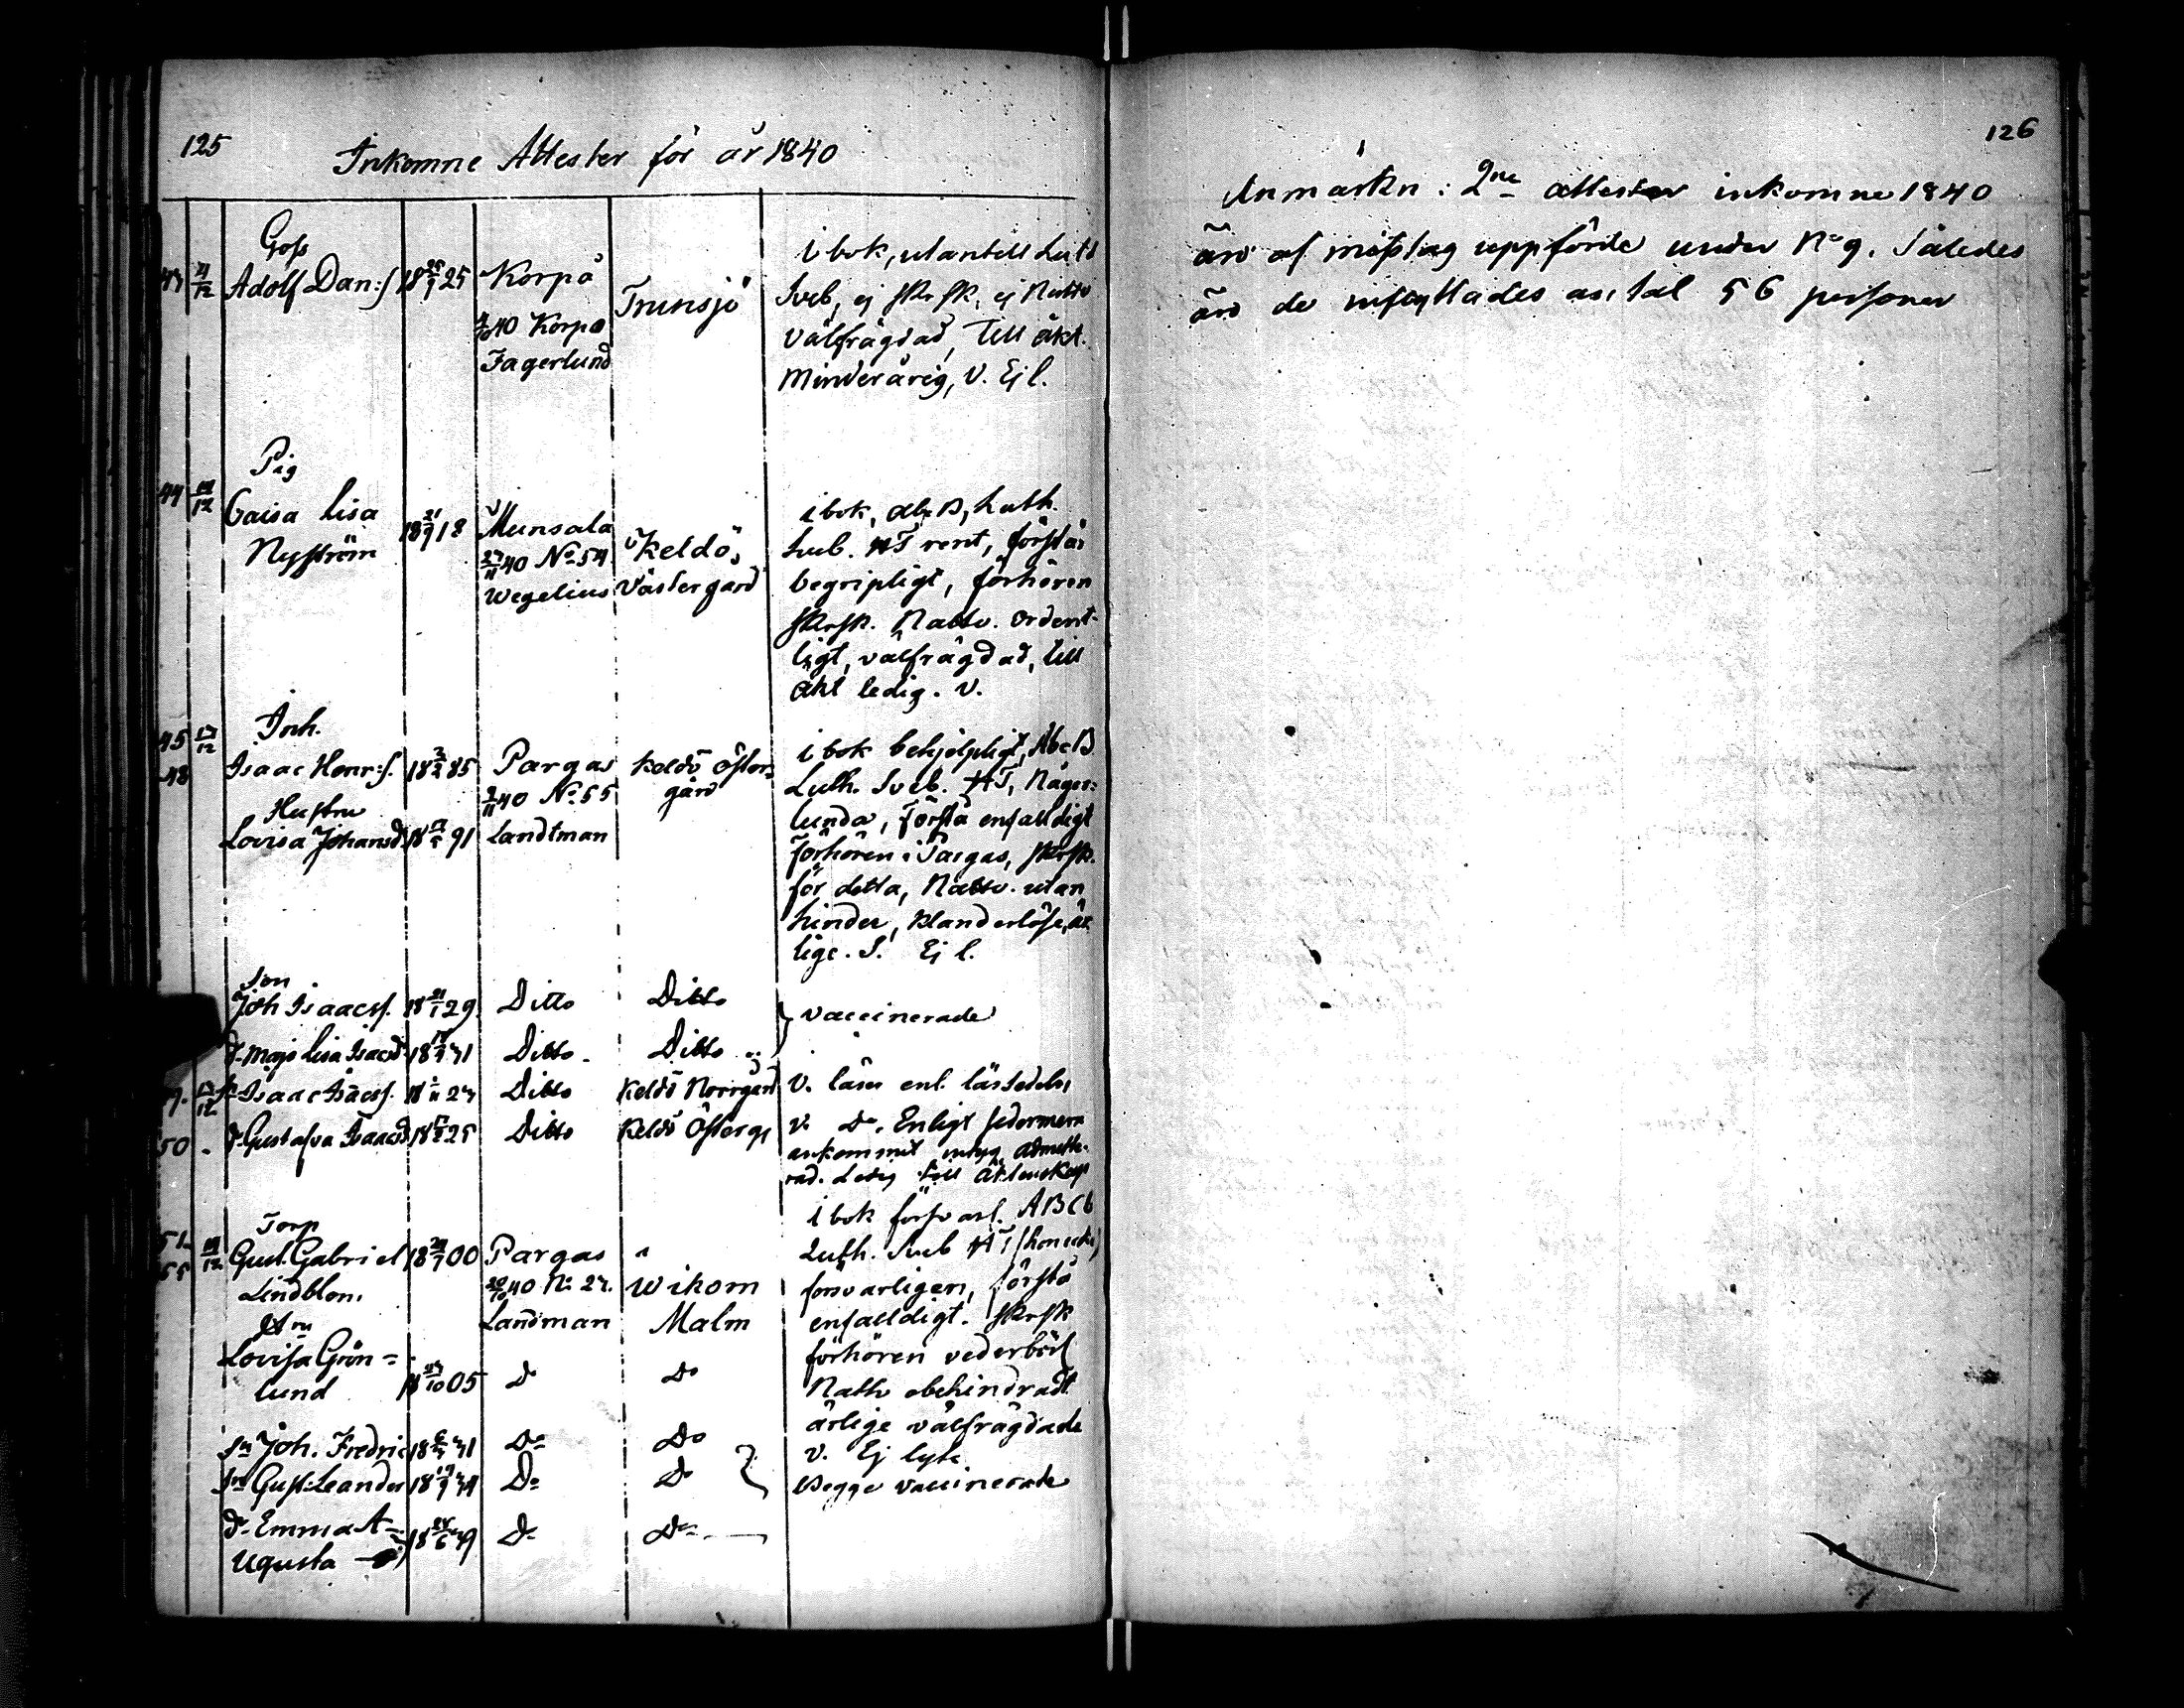 125
Inkomne Attester för år 1840
Goss
43 4/12 Adolf Dan:s 18 25/7 25 Korpo
4/10 40 Korpo Trunsjö
Fagerlund
i bok, utantill Luth
Sveb, ej skrsk, ej Nattv
välfrägdad, till äkt.
Minderårig, V. Ej l.
Pig
44 12 Caisa Lisa
Nyström
18 21/9 18 Munsala
27/11 40 No 54 Keldö,
Wegelius Västergård
i bok, Abc B, Luth.
Sveb. HT rent, förstår
begripligt, förhören
skrsk. Nattv. ordent-
ligt, välfrägdad, till
äkt ledig. V.
Inh.
45 17/12
48 Isaac Henr:s. 18 2/2 85 Pargas Keldö Öster-
11 40 No 55 gård
Hustru
Lovisa Johansd. 18 91 Landtman
i bok behjelpligt, AbcB
Luth. Sveb. HT, Någor-
lunda, förstå enfaldigt
Förhören i Pargas, skrsk.
för detta, Nattv. utan
hinder, klanderlöse, är
lige. S. Ej l.
Son
Joh Isaacss. 18 21/1 29. Ditto Ditto
d. Maja Lisa Isacsd 18 31 Ditto Ditto
} vaccinerade
17/12 Isaac Isacss. 18 11 23 Ditto Keldö Norrgård V. läser enl. lässedeln
50 d. Gustafva Isaacsd 18 25 Ditto Keldö Österg V. Do. Enligt sedermera
ankommit intyg admitte-
rad. Ledig till äktenskap
51-
55 12 Torp
Gust. Gabriel 18 29/7 00 Pargas
Lindblom 20/10 40 No 23. Wikom
Landman Malm
i bok försvarl. ABCb
Luth. Sveb HT
försvarligen, förstå
enfaldigt. skrsk
förhören vederbörl
Nattv obehindradt
ärlige välfrägdade
V. Ej lyte
Hru
Lovisa Grön=
lund 18 10 05 Do Do
Sn Joh. Fredric 18 31 Do Do
Sn Gust: Leander 18 34 Do Do } Begge vaccinerade
d. Emma A=
Ugusta 18 24/6 39 Do Do
126
Anmärkn: 2ne attester inkomne 1840
äro af misstag uppförde under No 9. Således
äro de inflyttades antal 56 personer